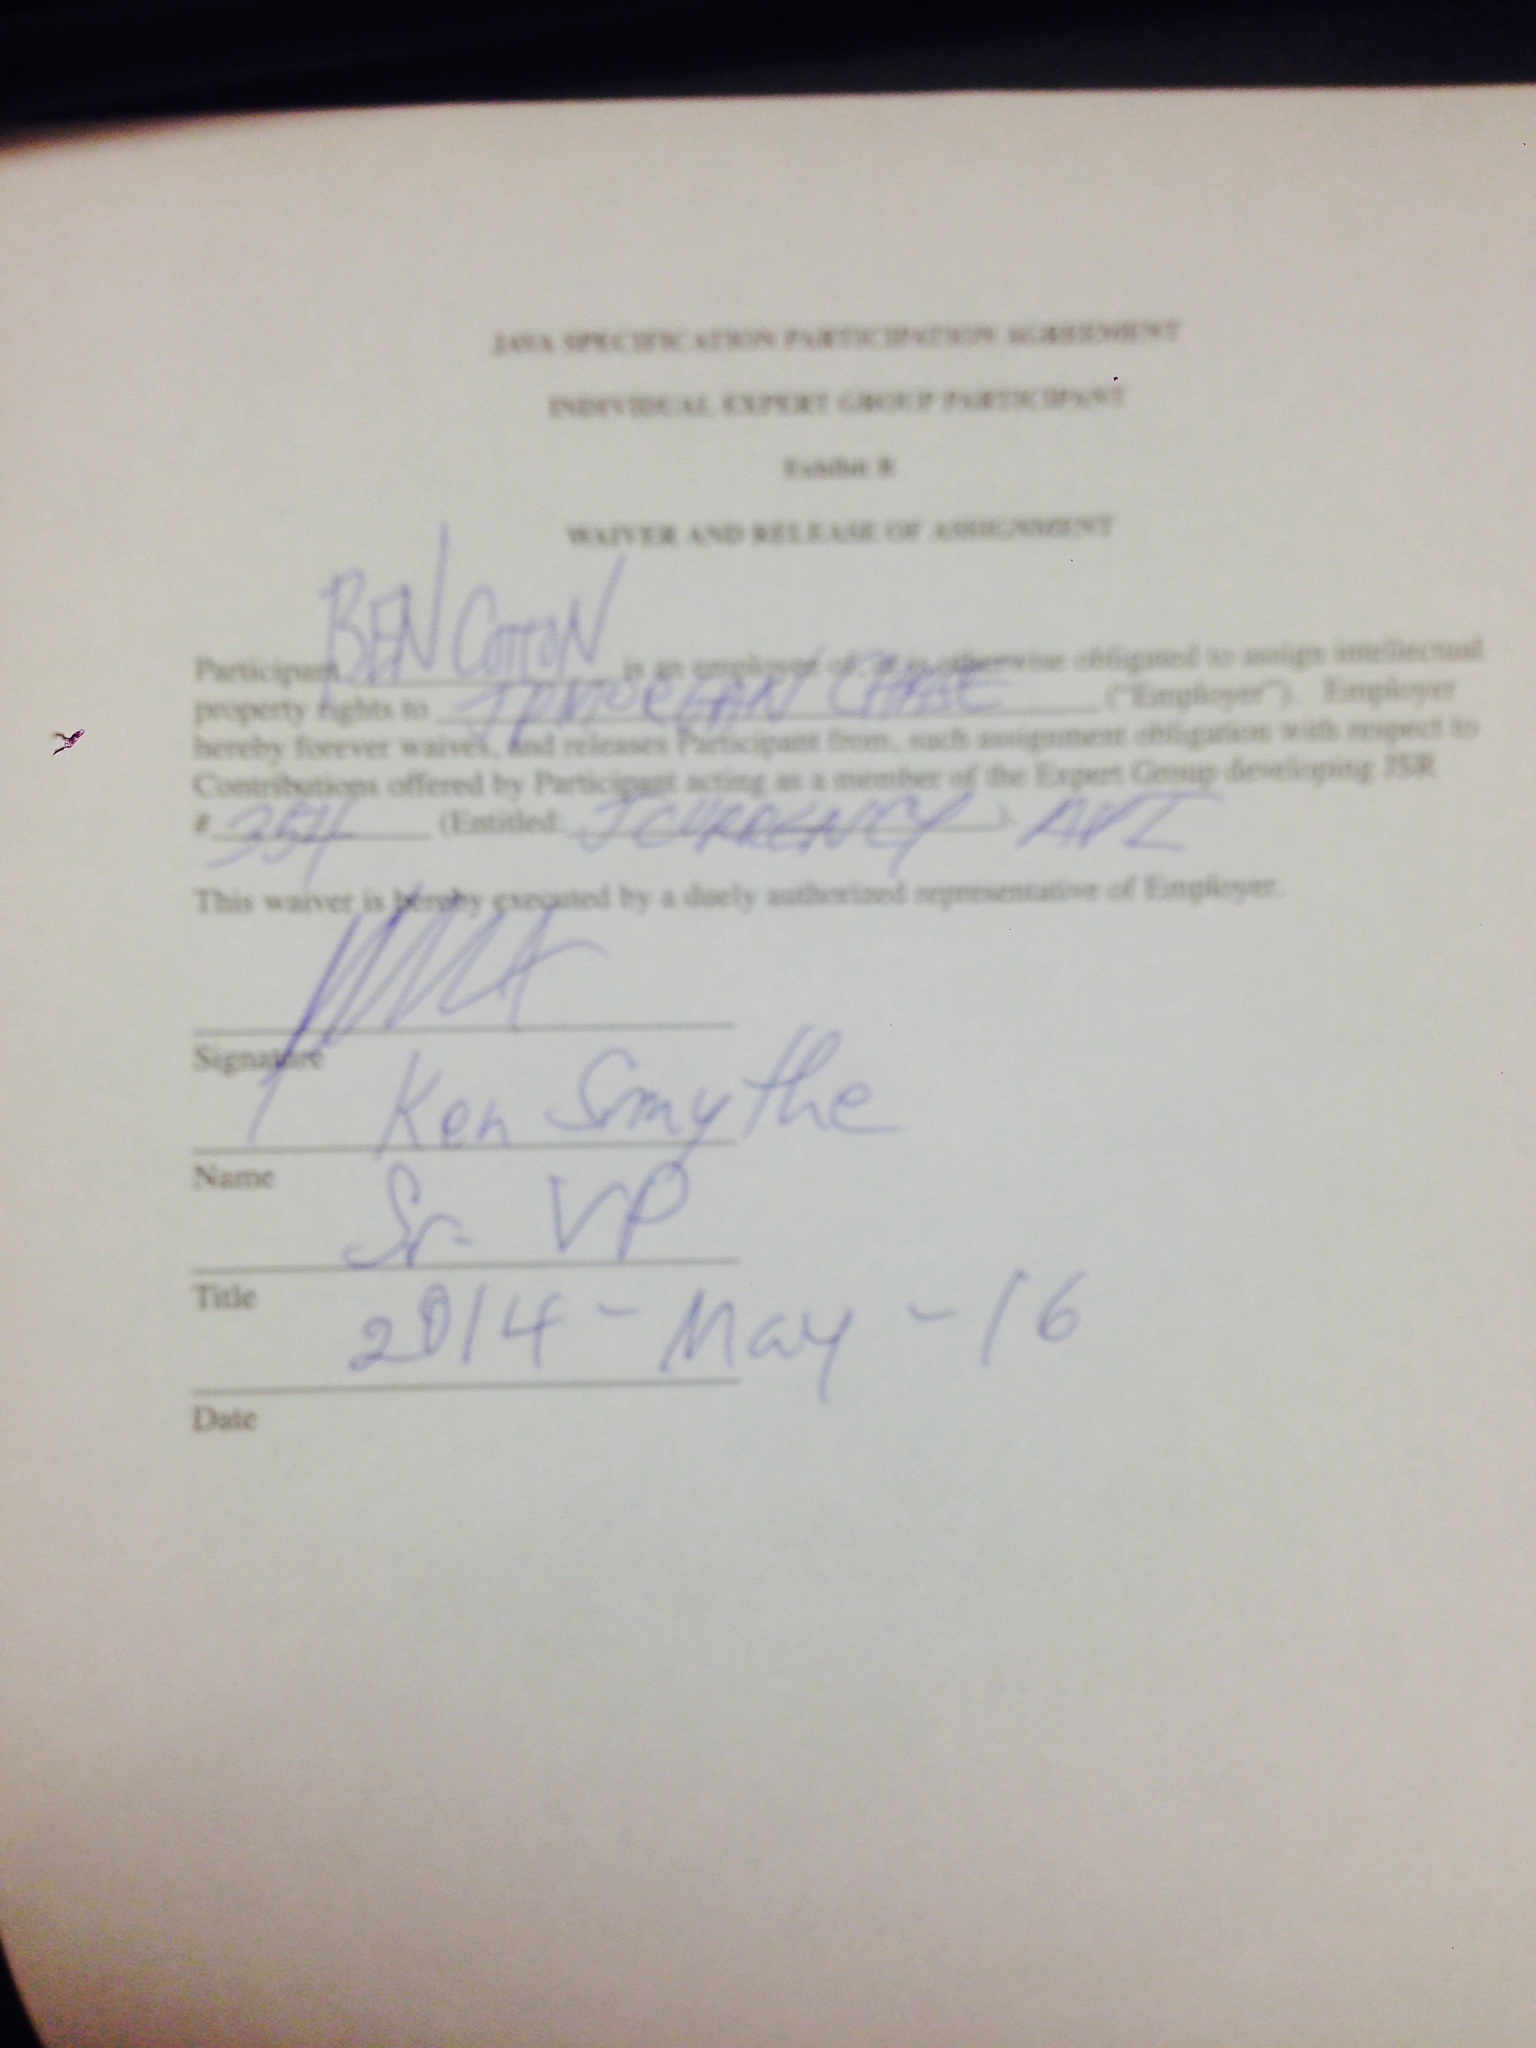 JAVA SPECIFICATION PARTICIPATION AGREEMENT
INDIVIDUAL EXPERT GROUP PARTICIPANT
Exhibit B
WAIVER AND RELEASE OF ASSIGNMENT
Participant BEN COTTON is an employee of, or is otherwise obligated to assign intellectual
property rights to JPMORGAN CHASE ("Employer"). Employer
hereby forever waives, and releases Participant from, such assignment obligation with respect to
Contributions offered by Participant acting as a member of the Expert Group developing JSR
# 354 (Entitled: JCURRENCY API ).
This waiver is hereby executed by a duely authorized representative of Employer.
Signature
Ken Smythe
Name
Sr. VP
Title
2014 - May - 16
Date